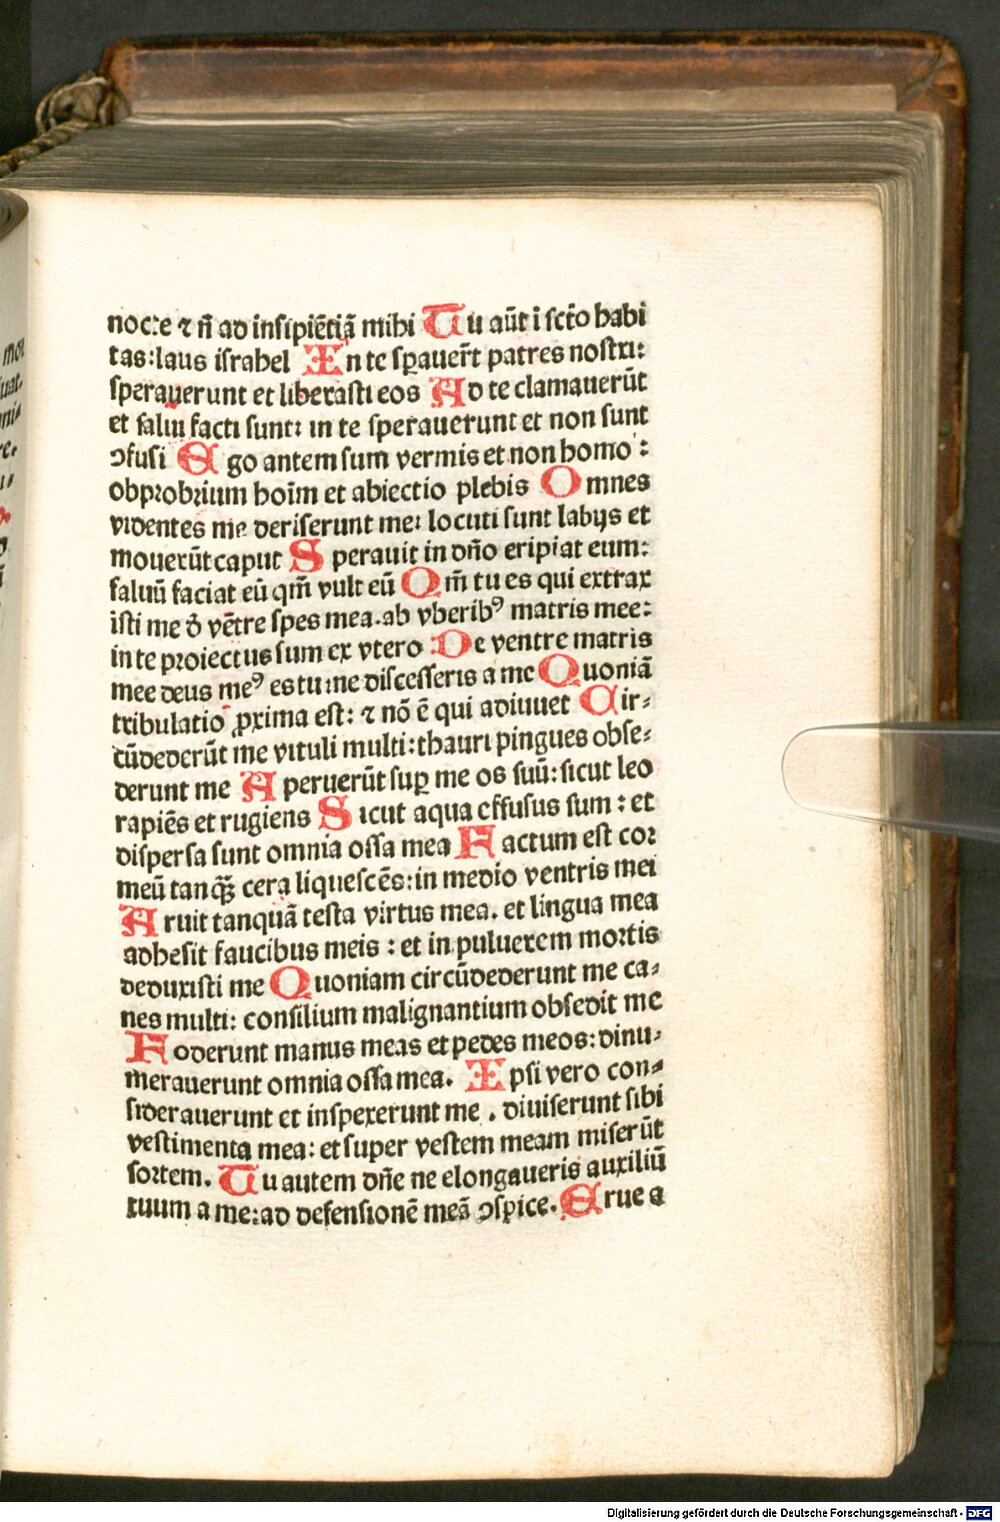 nocte ⁊ n̄ ad insipiētiā mihi Tu aūt i scto habi
tas: laus israhel In te spauer̄t patres nostri:
sperauerunt et liberasti eos Ad te clamauerūt
et salui facti sunt: in te sperauerunt et non sunt
ↄfusi Ego antem sum vermis et non homo:
obprobrium hoīm et abiectio plebis Omnes
videntes me deriserunt me: locuti sunt labijs et
mouerūt caput Sperauit in dn̄o eripiat eum:
saluū faciat eū qm̄ vult eū Qm̄ tu es qui extrax
isti me d̄ vētre spes mea. ab vberibꝰ matris mee:
in te proiectus sum ex vtero De ventre matris
mee deus meꝰ es tu: ne discesseris a me Quoniā
tribulatio ꝓxima est: ⁊ nō ē qui adiuuet Cir⸗
cūdederūt me vituli multi: thauri pingues obse⸗
derunt me Aperuerūt suꝑ me os suū: sicut leo
rapiēs et rugiens Sicut aqua effusus sum: et
dispersa sunt omnia ossa mea Factum est cor
meū tanqꝫ cera liquescēs: in medio ventris mei
Aruit tanquā testa virtus mea. et lingua mea
adhesit faucibus meis: et in puluerem mortis
deduxisti me Quoniam circūdederunt me ca⸗
nes multi: consilium malignantium obsedit me
Foderunt manus meas et pedes meos: dinu⸗
merauerunt omnia ossa mea. Ipsi vero con⸗
siderauerunt et inspexerunt me. diuiserunt sibi
vestimenta mea: et super vestem meam miserūt
sortem. Tu autem dn̄e ne elongaueris auxiliū
tuum a me: ad defensionē meā ↄspice. Erue a
Digitalisierung gefördert durch die Deutsche Forschungsgemeinschaft - DFG